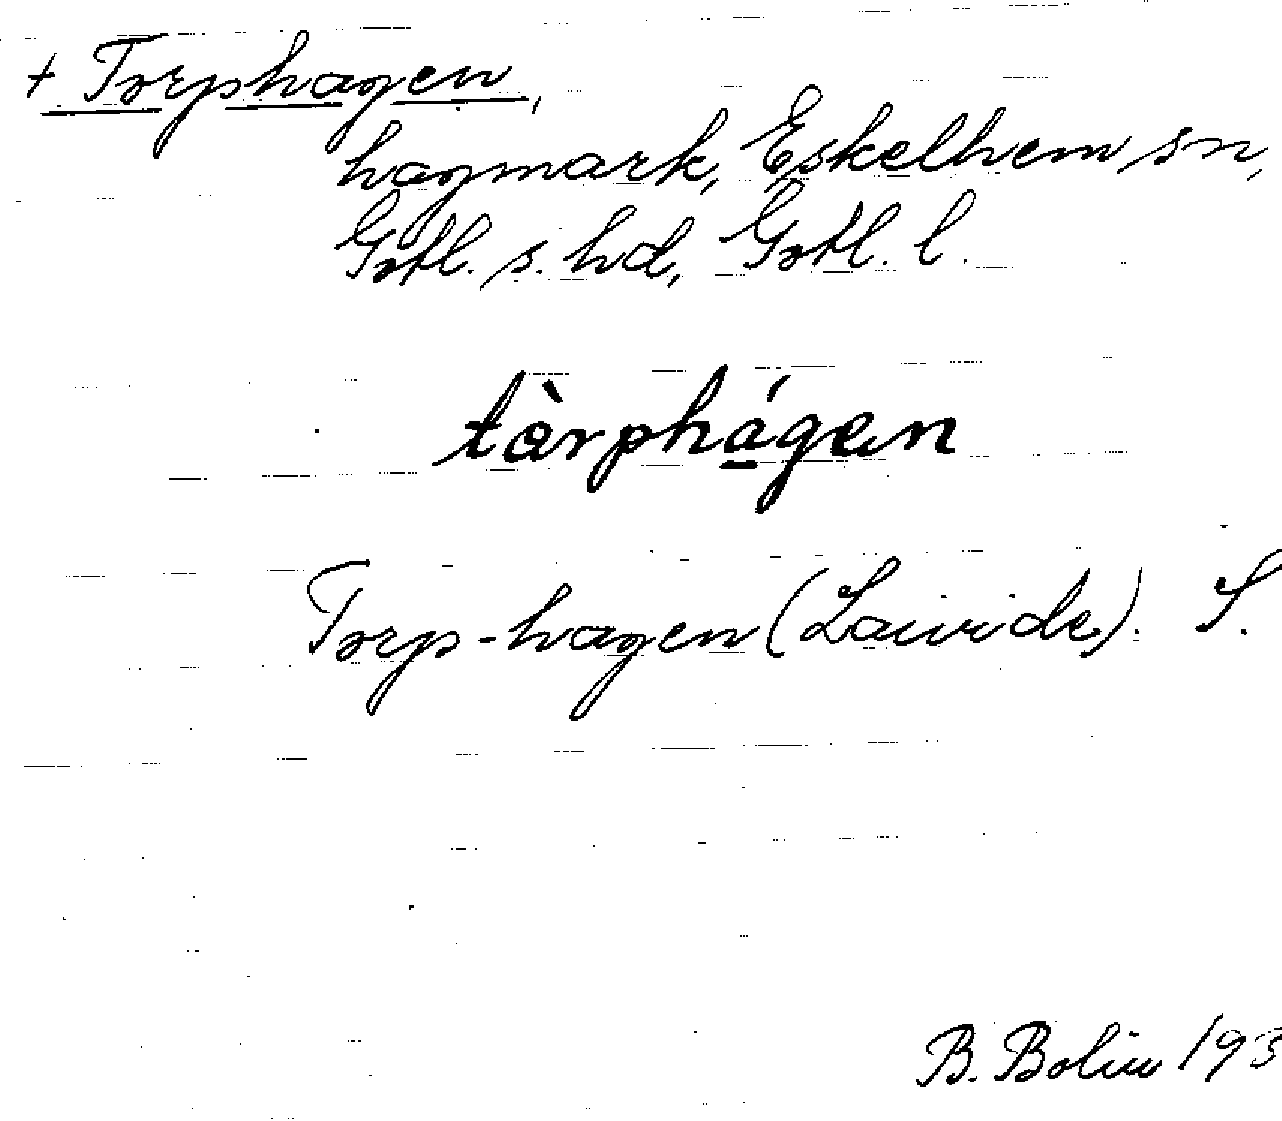 + Torphagen,
hagmark, Eskelhem sn,
Gotl. s. hd, Gotl. l.
tàrphágen
Torp-hagen (Lauvide). S.
B. Bolin 193